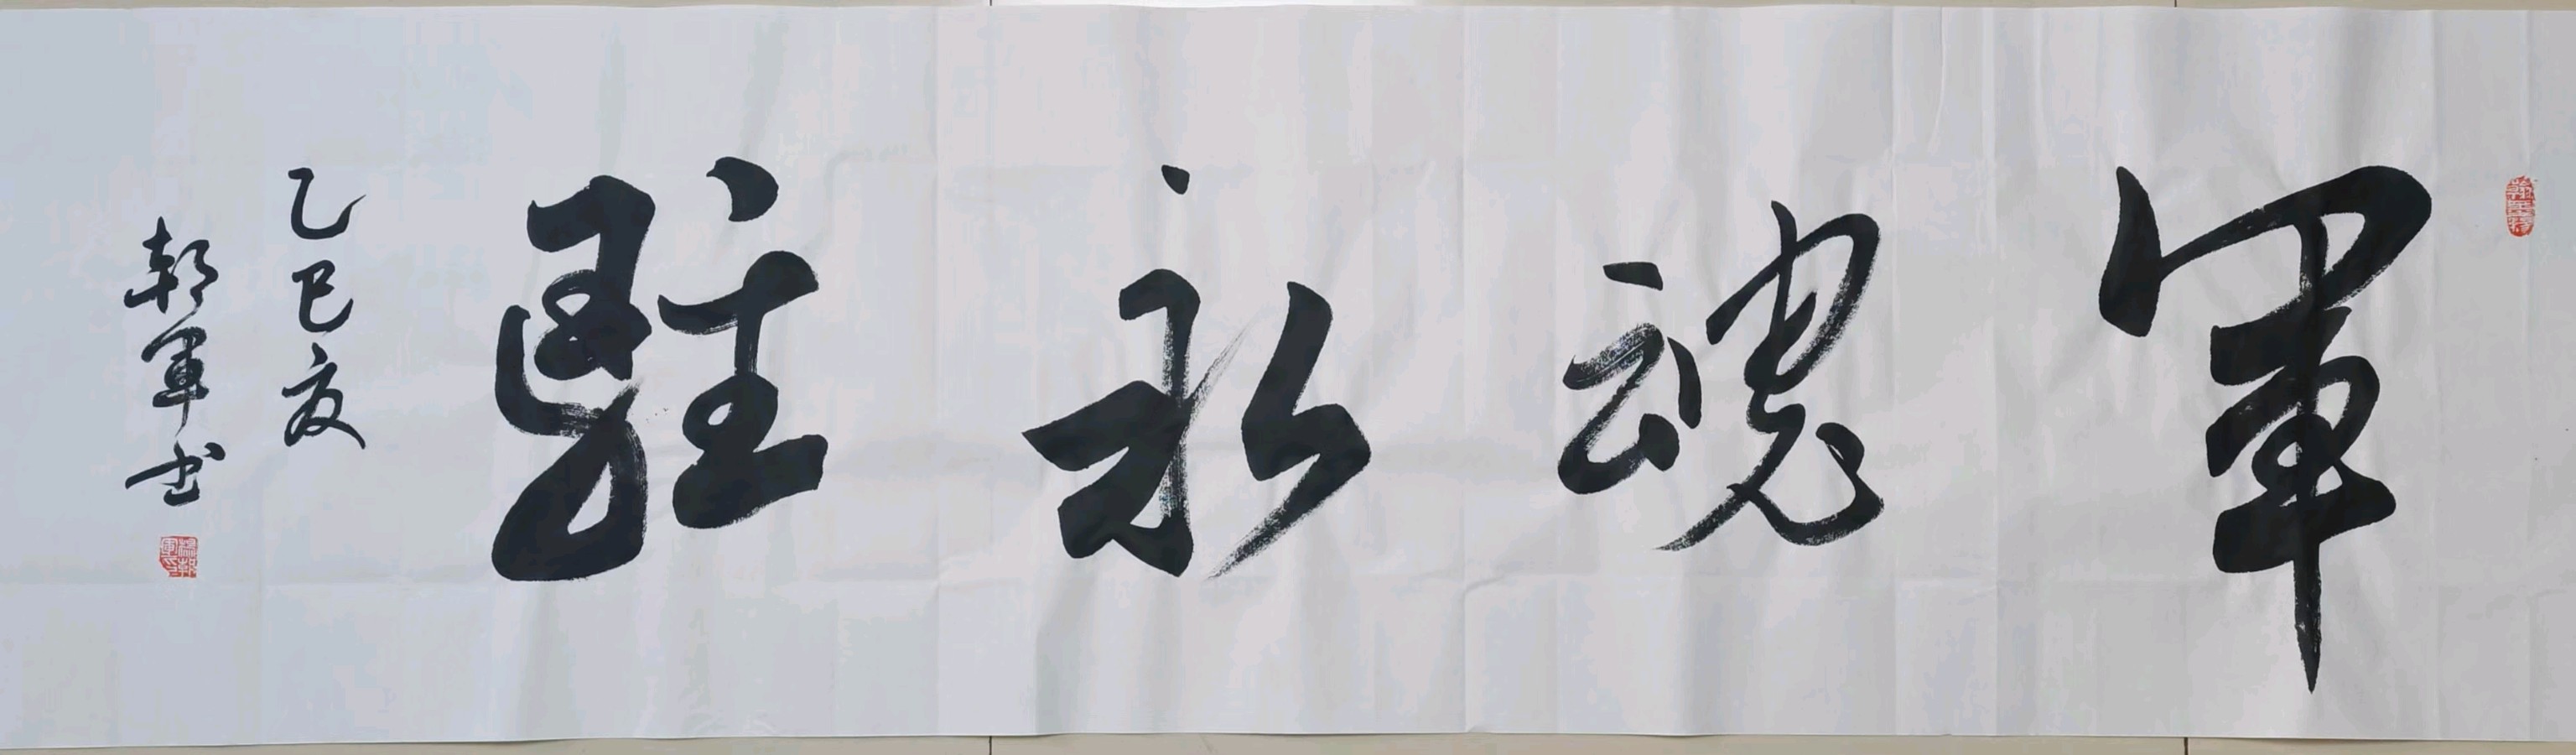 軍魂永駐
乙巳夏
朝軍书